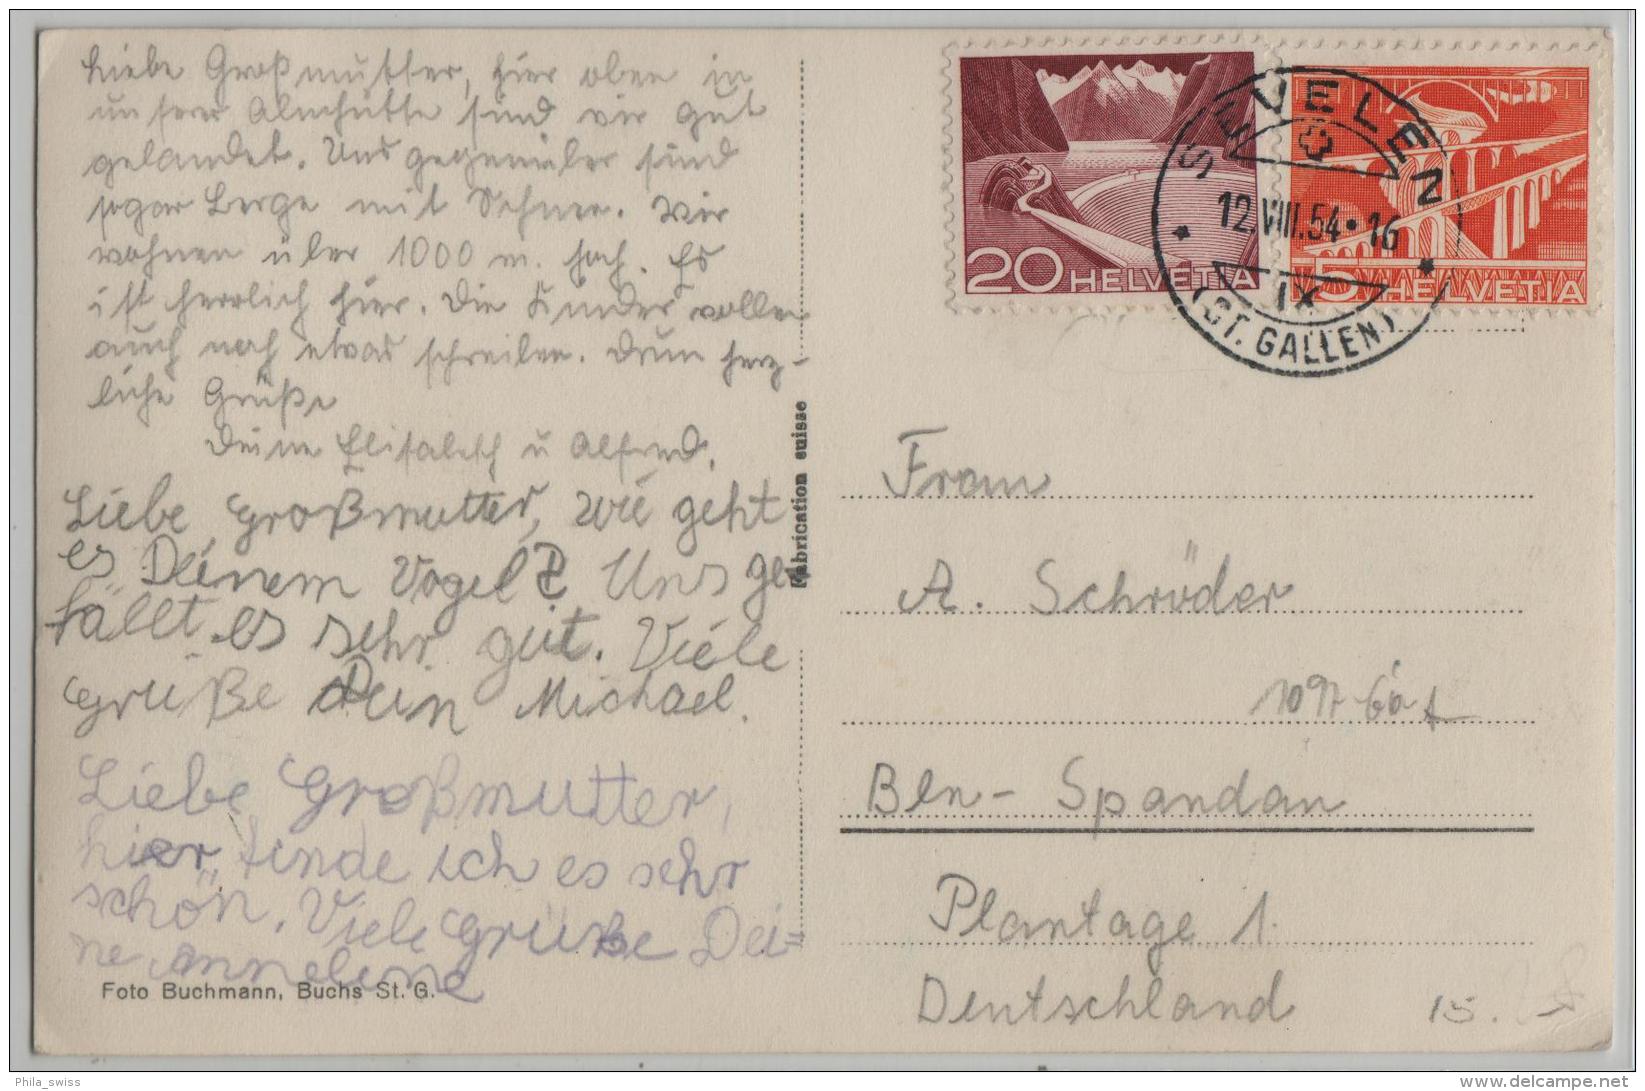 Liebe Großmutter, hier oben in
unserer Almhütte sind wir gut
gelandet. Und gegenüber sind
sogar Berge mit Schnee. Wir
wohnen über 1000 m. hoch. Es
ist herrlich hier. Die Kinder wollen
auch noch etwas schreiben. Drum herz-
liche Grüße
Deine Elisabeth u Alfred.
Liebe Großmutter, wie geht
es Deinem Vogel? Uns ge-
fällt es sehr gut. Viele
Grüße Dein Michael.
Liebe Großmutter,
hier finde ich es sehr
schön. Viele Grüße Dei=
ne Annelene
Foto Buchmann, Buchs St. G.
Fabrication suisse
20 HELVETIA
5 HELVETIA
SEVELEN
12.VIII.54.16
IX
(ST. GALLEN)
Frau
A. Schröder
Bln- Spandau
Plantage 1.
Deutschland
15.
Phila_swiss
www.delcampe.net